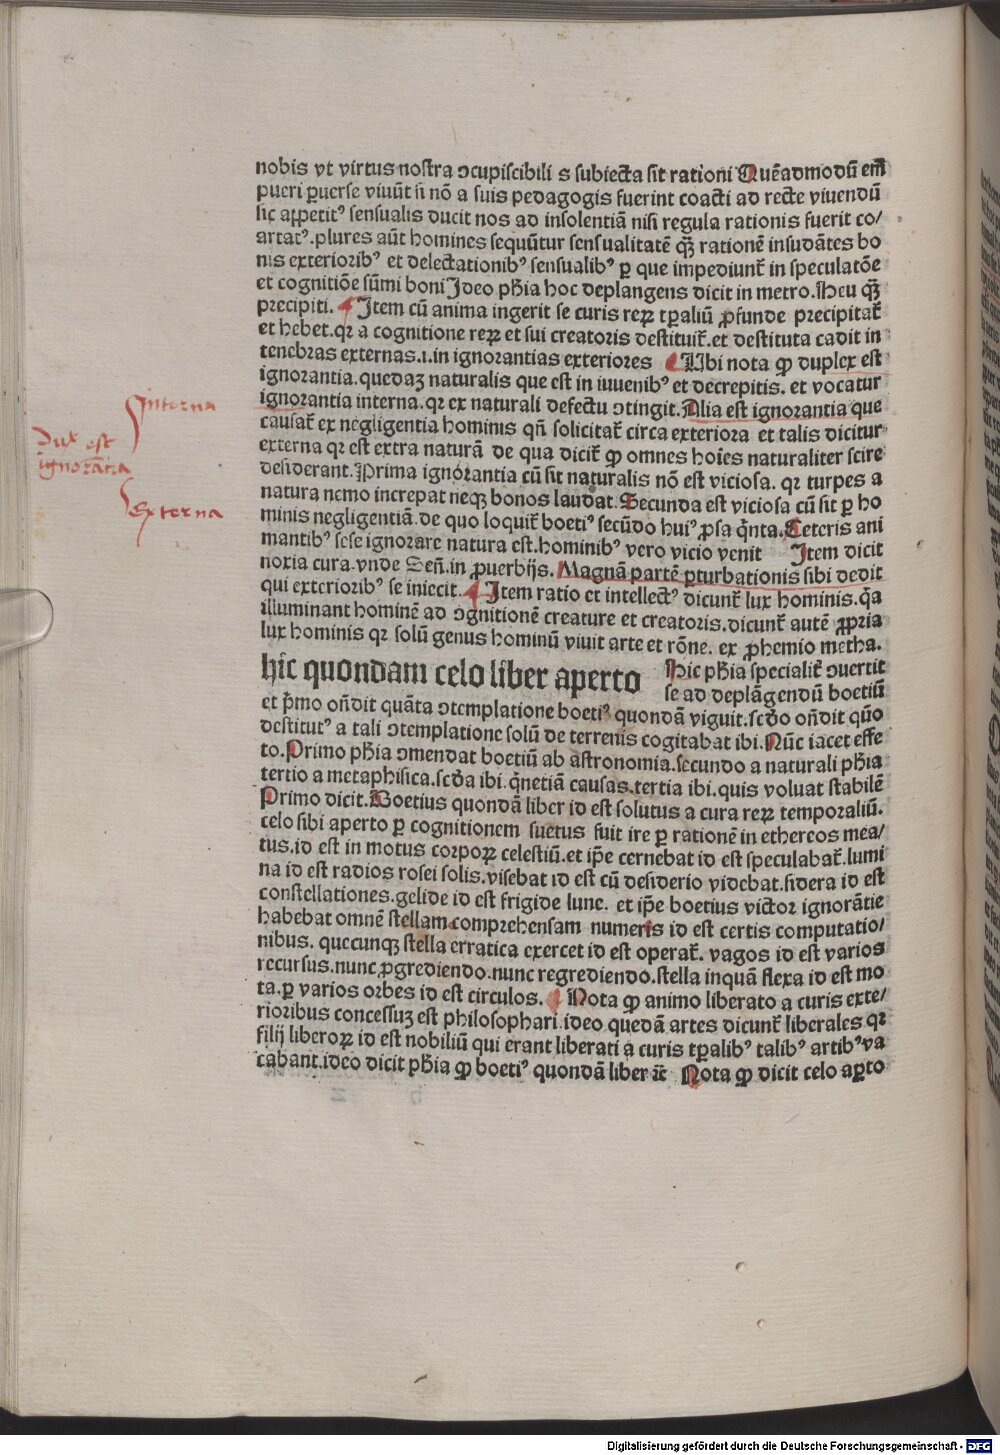 nobis vt virtus nostra ↄcupiscibilis subiecta sit rationi Quēadmodū em̄
pueri ꝑuerse viuūt si nō a suis pedagogis fuerint coacti ad recte viuendū
sic appetitꝰ sensualis ducit nos ad insolentiā nisi regula rationis fuerit co/
artatꝰ.plures aūt homines sequūtur sensualitatē qꝫ rationē insudātes bo
nis exterioribꝰ et delectationibꝰ sensualibꝰ ꝑ que impediunt̄ in speculatōe
et cognitiōe sūmi boni Ideo ph̄ia hoc deplangens dicit in metro.Heu qꝫ
precipiti. ¶ Item cū anima ingerit se curis reꝝ tꝑaliū ꝓfunde precipitat̄
et hebet.qꝛ a cognitione reꝝ et sui creatoris destituit̄.et destituta cadit in
tenebras externas.i.in ignorantias exteriores ¶ Ubi nota ꝙ duplex est
ignorantia.quedaꝫ naturalis que est in iuuenibꝰ et decrepitis. et vocatur
ignorantia interna.qꝛ ex naturali defectu ↄtingit.Alia est ignorantia que
causat̄ ex negligentia hominis qñ solicitat̄ circa exteriora et talis dicitur
externa qꝛ est extra naturā de qua dicit̄ ꝙ omnes hoīes naturaliter scire
desiderant.Prima ignorantia cū sit naturalis nō est viciosa. qꝛ turpes a
natura nemo increpat neqꝫ bonos laudat.Secunda est viciosa cū sit ꝑ ho
minis negligentiā.de quo loquit̄ boetiꝰ secūdo huiꝰ ꝓsa q̄nta.Ceteris ani
mantibꝰ sese ignorare natura est.hominibꝰ vero vicio venit Item dicit
noxia cura.vnde Señ.in ꝓuerbijs. Magnā partē ꝑturbationis sibi dedit
qui exterioribꝰ se iniecit. ¶ Item ratio et intellectꝰ dicunt̄ lux hominis.q̄a
illuminant hominē ad ↄgnitionē creature et creatoris.dicunt̄ autē ꝓpria
lux hominis qꝛ solū genus hominū viuit arte et rōne. ex ꝓhemio metha.
hic quondam celo liber aperto
Hic ph̄ia specialit̄ ↄuertit
se ad deplāgendū boetiū
et p̄mo on̄dit quāta ↄtemplatione boetiꝰ quondā viguit.scd̄o on̄dit quō
destitutꝰ a tali ↄtemplatione solū de terrenis cogitabat ibi.Nūc iacet effe
to.Primo ph̄ia ↄmendat boetiū ab astronomia.secundo a naturali ph̄ia
tertio a metaphisica.scd̄a ibi q̄netiā causas.tertia ibi.quis voluat stabilē
Primo dicit.Boetius quondā liber id est solutus a cura reꝝ temporaliū.
celo sibi aperto ꝑ cognitionem suetus fuit ire ꝑ rationē in ethereos mea/
tus.id est in motus corpoꝝ celestiū.et ip̄e cernebat id est speculabat̄.lumi
na id est radios rosei solis.visebat id est cū desiderio videbat.sidera id est
constellationes.gelide id est frigide lune. et ip̄e boetius victor ignorātie
habebat omnē stellam comprehensam numeris id est certis computatio/
nibus. quecunqꝫ stella erratica exercet id est operat̄. vagos id est varios
recursus.nunc ꝓgrediendo.nunc regrediendo.stella inquā flexa id est mo
ta.ꝑ varios orbes id est circulos. ¶ Nota ꝙ animo liberato a curis exte/
rioribus concessuꝫ est philosophari.ideo quedā artes dicunt̄ liberales qꝛ
filij liberoꝝ id est nobiliū qui erant liberati a curis tꝑalibꝰ talibꝰ artibꝰ va
cabant.ideo dicit ph̄ia ꝙ boetiꝰ quondā liber ⁊c̄ Nota ꝙ dicit celo aꝑto
Interna
dux est
ignorātia
Externa
Digitalisierung gefördert durch die Deutsche Forschungsgemeinschaft - DFG